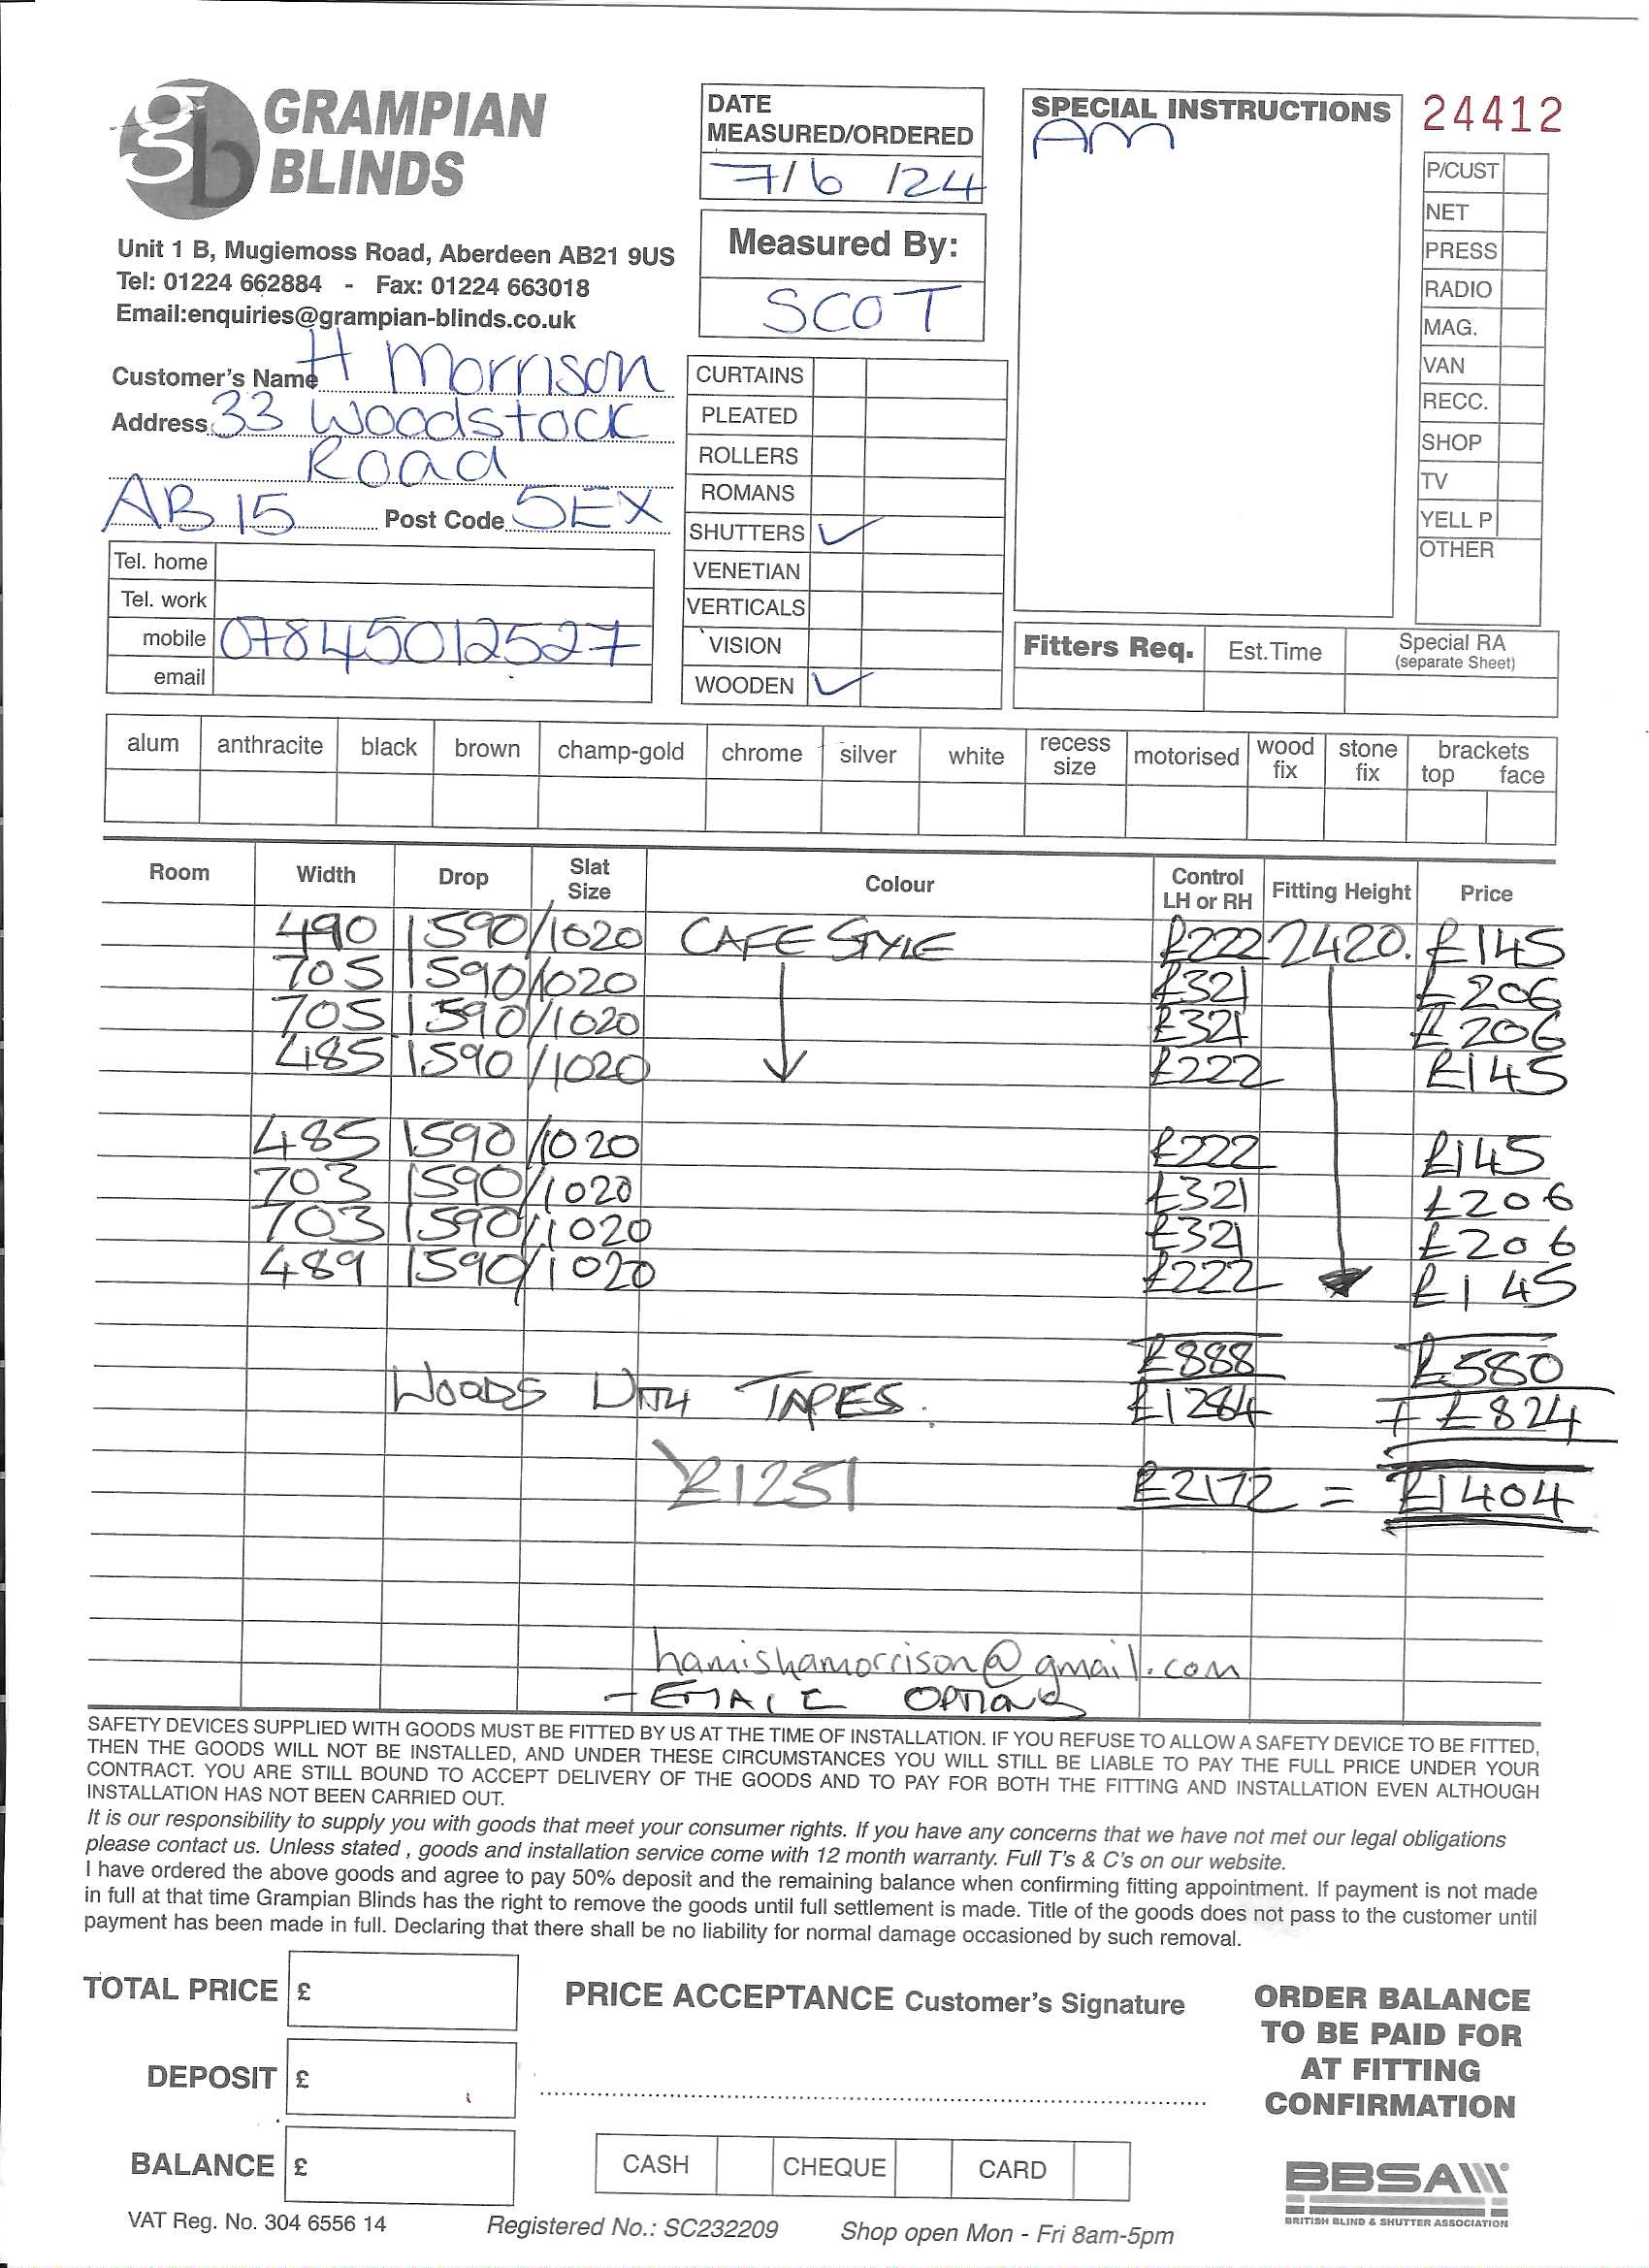 gb GRAMPIAN
BLINDS
Unit 1 B, Mugiemoss Road, Aberdeen AB21 9US
Tel: 01224 662884 - Fax: 01224 663018
Email:enquiries@grampian-blinds.co.uk
DATE
MEASURED/ORDERED
7/6/24
Measured By:
SCOT
SPECIAL INSTRUCTIONS
AM
24412
P/CUST
NET
PRESS
RADIO
MAG.
VAN
RECC.
SHOP
TV
YELL P
OTHER
Customer's Name H Morrison
Address 33 Woodstock
Road
AB15 Post Code 5EX
Tel. home
Tel. work
mobile 07845012527
email
CURTAINS
PLEATED
ROLLERS
ROMANS
SHUTTERS ✓
VENETIAN
VERTICALS
VISION
WOODEN ✓
Fitters Req. Est.Time Special RA
(separate Sheet)
alum anthracite black brown champ-gold chrome silver white recess size motorised wood fix stone fix brackets top face
Room Width Drop Slat Size Colour Control LH or RH Fitting Height Price
490 1590/1020 CAFE STYLE £222 2420. £145
705 1590/1020 £321 £206
705 1590/1020 £321 £206
485 1590/1020 £222 £145
485 1590/1020 £222 £145
703 1590/1020 £321 £206
703 1590/1020 £321 £206
489 1590/1020 £222 £145
£888 £580
WOODS WITH TAPES. £1284 + £824
£1251 £2172 = £1404
hamishamorrison@gmail.com
- EMAIL OPTIONS
SAFETY DEVICES SUPPLIED WITH GOODS MUST BE FITTED BY US AT THE TIME OF INSTALLATION. IF YOU REFUSE TO ALLOW A SAFETY DEVICE TO BE FITTED,
THEN THE GOODS WILL NOT BE INSTALLED, AND UNDER THESE CIRCUMSTANCES YOU WILL STILL BE LIABLE TO PAY THE FULL PRICE UNDER YOUR
CONTRACT. YOU ARE STILL BOUND TO ACCEPT DELIVERY OF THE GOODS AND TO PAY FOR BOTH THE FITTING AND INSTALLATION EVEN ALTHOUGH
INSTALLATION HAS NOT BEEN CARRIED OUT.
It is our responsibility to supply you with goods that meet your consumer rights. If you have any concerns that we have not met our legal obligations
please contact us. Unless stated , goods and installation service come with 12 month warranty. Full T's & C's on our website.
I have ordered the above goods and agree to pay 50% deposit and the remaining balance when confirming fitting appointment. If payment is not made
in full at that time Grampian Blinds has the right to remove the goods until full settlement is made. Title of the goods does not pass to the customer until
payment has been made in full. Declaring that there shall be no liability for normal damage occasioned by such removal.
TOTAL PRICE £
DEPOSIT £
BALANCE £
PRICE ACCEPTANCE Customer's Signature
CASH CHEQUE CARD
ORDER BALANCE
TO BE PAID FOR
AT FITTING
CONFIRMATION
BBSA
BRITISH BLIND & SHUTTER ASSOCIATION
VAT Reg. No. 304 6556 14 Registered No.: SC232209 Shop open Mon - Fri 8am-5pm